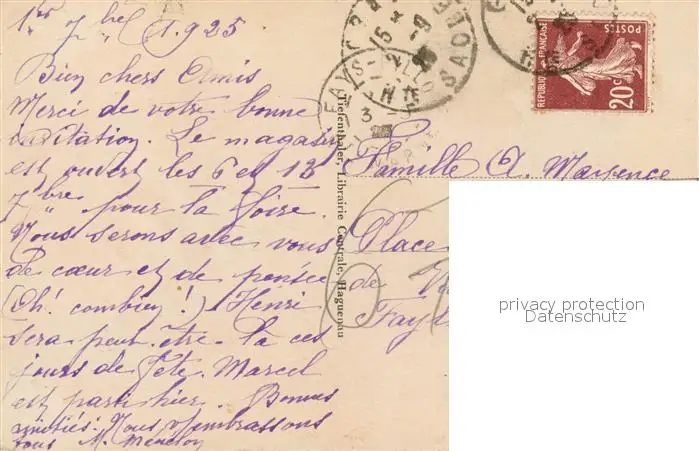 1er 7bre 1925
Bien chers Amis
Merci de votre bonne
invitation. Le magasin
est ouvert les 6 et 13
7bre pour la foire.
Nous serons avec vous
de cœur et de pensée
(Oh! combien!) Henri
sera peut-être là ces
jours de fête. Marcel
est parti hier. Bonnes
amitiés. Nous v/ embrassons
tous
Tiefenthaler, Librairie Centrale, Haguenau
POSTES
REPUBLIQUE FRANÇAISE
20c
FAYS-
Famille A. Mayence
Place
de
Fayl
privacy protection
Datenschutz